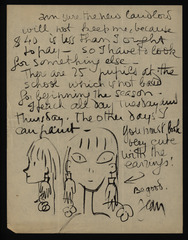 I'm sure the new landlord
will not keep me, because
£40 is less than I ought
to pay — so I have to look
for something else —
There are 75 pupils at the
school which is not bad
for beginning the season
I teach all day Tuesday and
Thursday. The other days I
can paint
You must look
very cute
with the
earrings!
Be good.